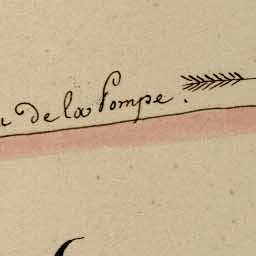 de la Pompe.